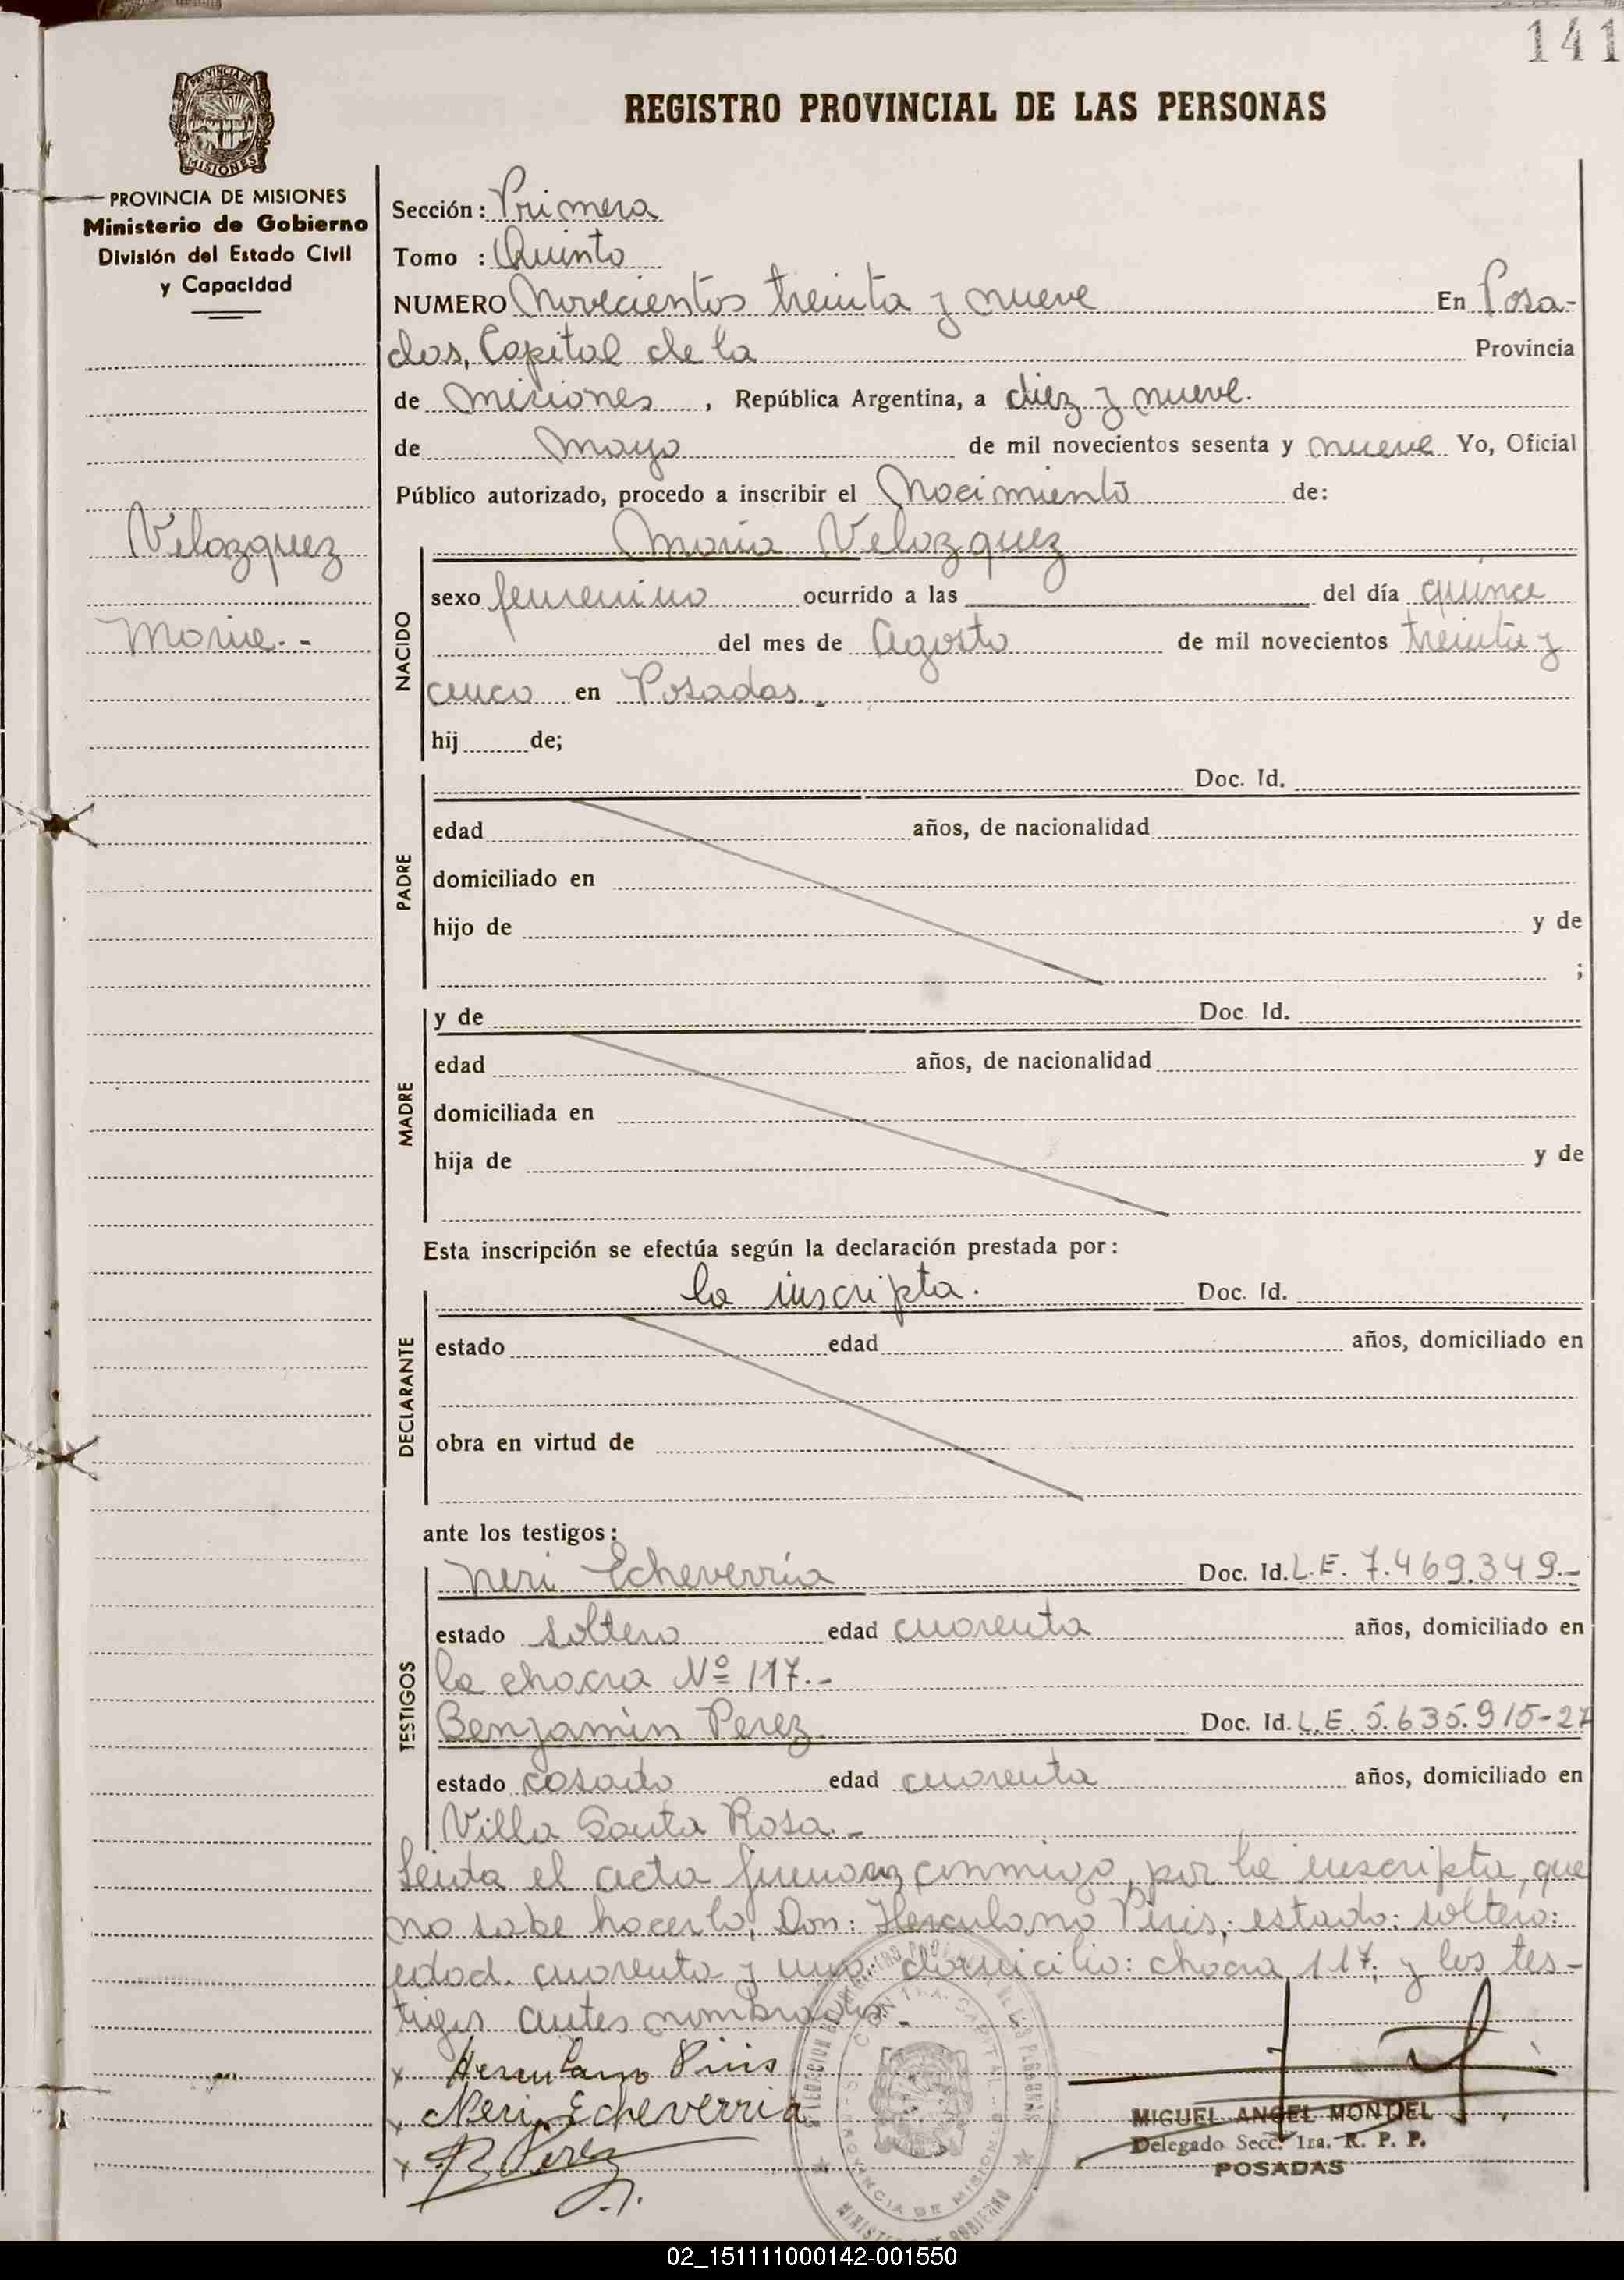 141
REGISTRO PROVINCIAL DE LAS PERSONAS
PROVINCIA DE MISIONES
MISIONES
PROVINCIA DE MISIONES
Ministerio de Gobierno
División del Estado Civil
y Capacidad
Velazquez
Maria.-
Sección: Primera
Tomo : Quinto
NUMERO Novecientos treinta y nueve En Posa-
das, Capital de la Provincia
de Misiones, República Argentina, a diez y nueve.
de Mayo de mil novecientos sesenta y nueve Yo, Oficial
Público autorizado, procedo a inscribir el Nacimiento de:
Maria Velazquez
NACIDO
sexo femenino ocurrido a las del día quince
del mes de Agosto de mil novecientos treinta y
cinco en Posadas.-
hij de;
PADRE
Doc. Id.
edad años, de nacionalidad
domiciliado en
hijo de y de
;
MADRE
y de Doc. Id.
edad años, de nacionalidad
domiciliada en
hija de y de
Esta inscripción se efectúa según la declaración prestada por:
DECLARANTE
la inscripta. Doc. Id.
estado edad años, domiciliado en
obra en virtud de
ante los testigos:
TESTIGOS
Neri Echeverria Doc. Id. L.E. 7.469.349.-
estado soltero edad cuarenta años, domiciliado en
la chacra Nº 117.-
Benjamin Perez Doc. Id. L.E. 5.635.915-27
estado casado edad cuarenta años, domiciliado en
Villa Santa Rosa.-
Leida el acta firman conmigo, por la inscripta, que
no sabe hacerlo, Don: Herculano Piris, estado: soltero:
edad. cuarenta y uno: domicilio: chacra 117; y los tes-
tigos antes nombrados.-
x Herculano Piris
x Neri Echeverria
x B Perez
PROVINCIA DE MISIONES
MINISTERIO DE GOBIERNO
MIGUEL ANGEL MONTIEL
Delegado Secc. 1ra. R. P. P.
POSADAS
02_151111000142-001550